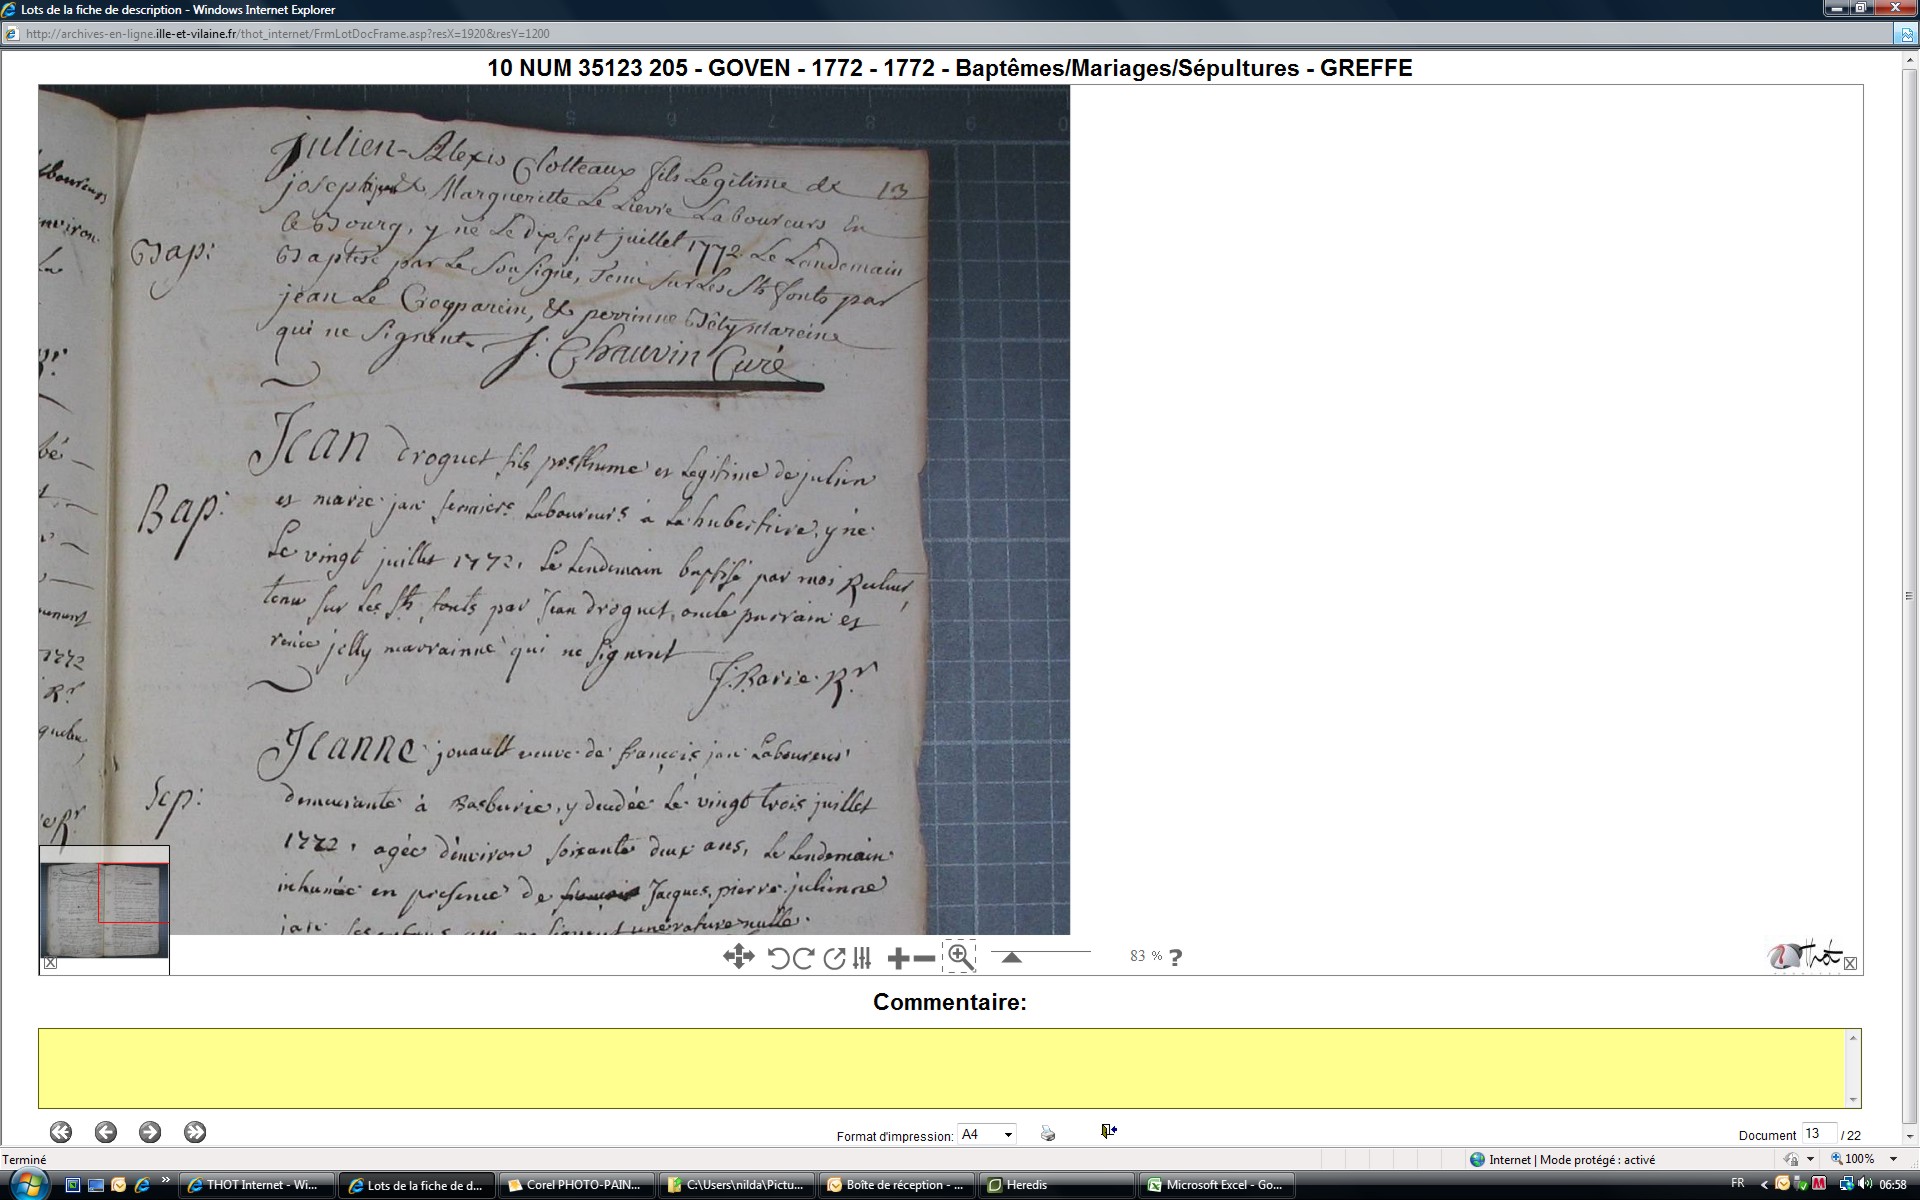 Lots de la fiche de description - Windows Internet Explorer
http://archives-en-ligne.ille-et-vilaine.fr/thot_internet/FrmLotDocFrame.asp?resX=1920&resY=1200
10 NUM 35123 205 - GOVEN - 1772 - 1772 - Baptêmes/Mariages/Sépultures - GREFFE
julien-Alexis Clotteaux fils Legitime de 13
joseph & Margueritte Le Lievre Laboureurs En
ce Bourg, y né Le dixsept juillet 1772. Le Landemain
Bap:
Baptisé par Le Sousigné, Tenu sur Les Sts fonts par
jean Le parein, & perrinne mareine
qui ne signent. J. Chauvin Curé
Jean droguet fils posthume et Legitime de julien
Bap:
et marie jan fermiers Laboureurs à La huberture, y né
Le vingt juillet 1772, Le Lendemain baptisé par moi Recteur,
tenu sur Les Sts fonts par Jean droguet, oncle parrain et
renée jelly marrainne qui ne signent
J. Barre. Rr
Jeanne jouault veuve de françois jan Laboureur
Sep:
demeurante à , y decedée Le vingt trois juillet
1772, agée d'environ soixante deux ans, Le Lendemain
inhumée en presence de Jacques, pierre, julienne
jan ses enfans qui ne signent une rature nulle.
83 % ?
Thot
Commentaire:
Format d'impression: A4
Document 13 / 22
Terminé
Internet | Mode protégé : activé
100%
THOT Internet - Wi...
Lots de la fiche de d...
Corel PHOTO-PAIN...
C:\Users\nilda\Pictu...
Boîte de réception - ...
Heredis
Microsoft Excel - Go...
FR
06:58